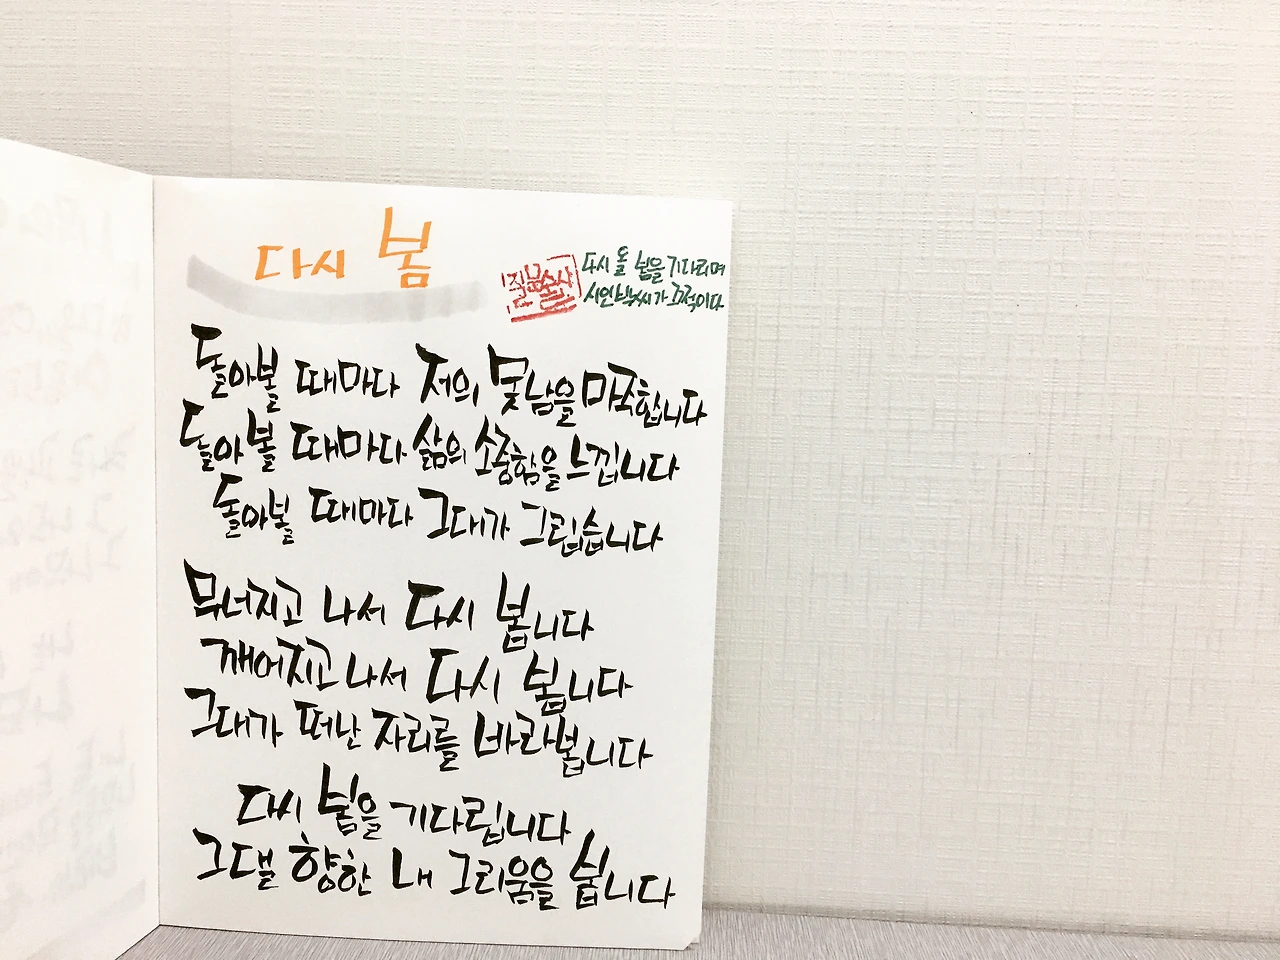 다시 봄
질문술사
다시 올 봄을 기다리며
시인박씨가 끄적이다
돌아볼 때마다 저의 못남을 마주합니다
돌아볼 때마다 삶의 소중함을 느낍니다
돌아볼 때마다 그대가 그립습니다
무너지고 나서 다시 봅니다
깨어지고 나서 다시 봅니다
그대가 떠난 자리를 바라봅니다
다시 봄을 기다립니다
그댈 향한 내 그리움을 쉽니다